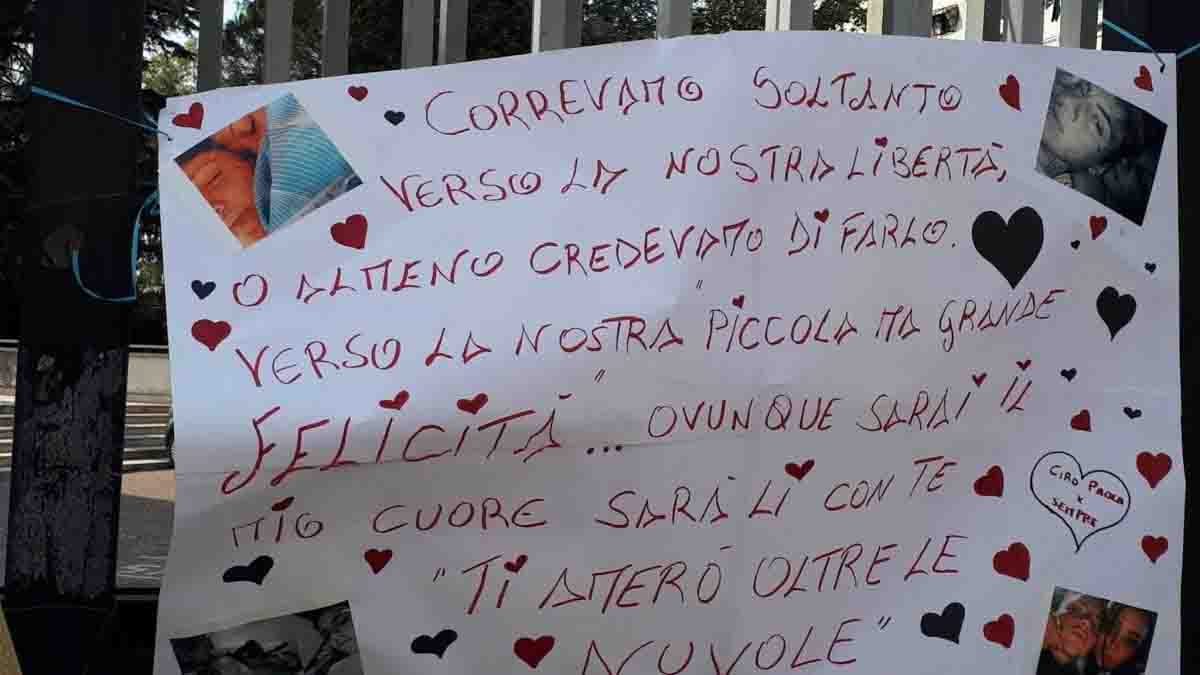 CORREVAMO SOLTANTO
VERSO LA NOSTRA LIBERTÀ,
O ALMENO CREDEVAMO DI FARLO.
VERSO LA NOSTRA "PICCOLA MA GRANDE
FELICITÀ" ... OVUNQUE SARAI IL
MIO CUORE SARÀ LÌ CON TE
"TI AMERÒ OLTRE LE
NUVOLE"
CIRO PAOLA
X
SEMPRE